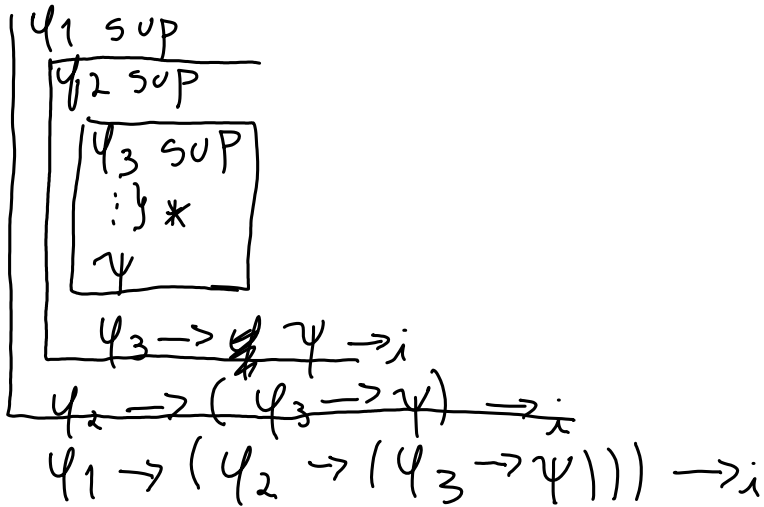 φ1 sup
φ2 sup
φ3 sup
⋮ } *
ψ
φ3 → ψ →i
φ2 → (φ3 → ψ) →i
φ1 → (φ2 → (φ3 → ψ))) →i